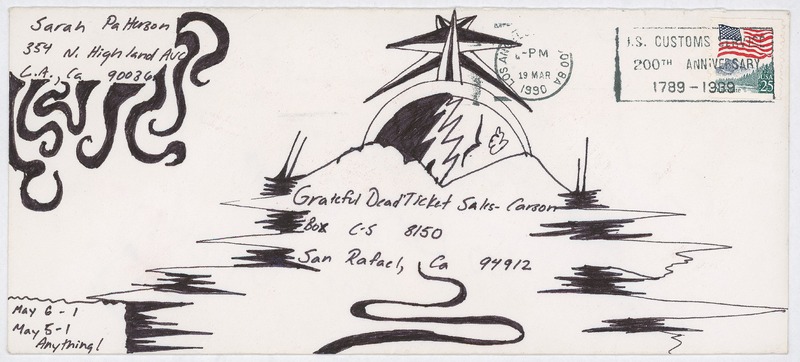 Sarah Patterson
354 N. Highland Ave
L.A., Ca 90036
PM
19 MAR
1990
U.S. CUSTOMS
200TH ANNIVERSARY
1789-1989
USA
25
Grateful Dead Ticket Sales - Carson
Box C-S 8150
San Rafael, Ca 94912
May 6-1
May 5-1
Anything!